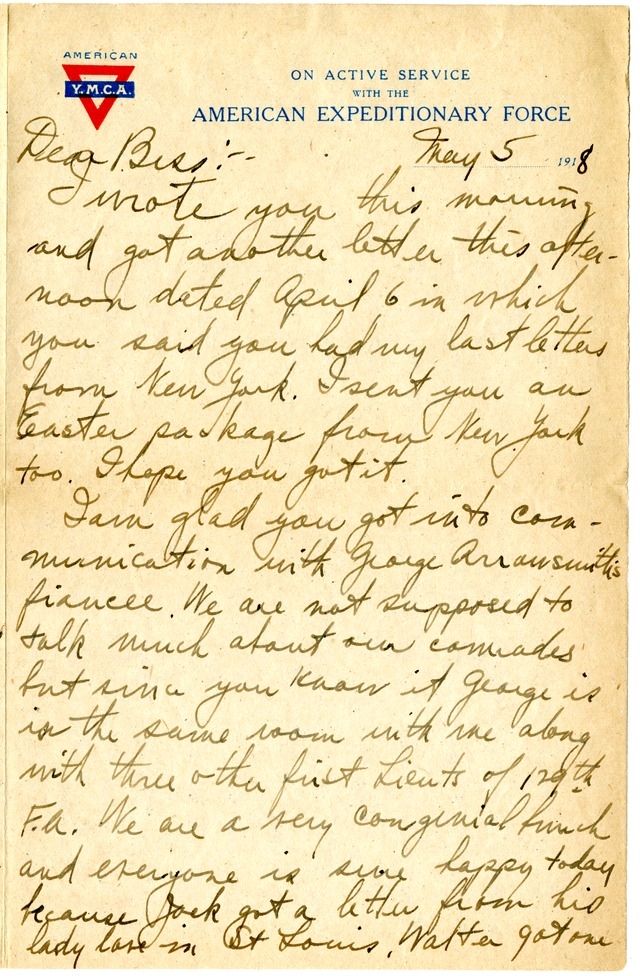 AMERICAN
Y.M.C.A.
ON ACTIVE SERVICE
WITH THE
AMERICAN EXPEDITIONARY FORCE
Dear Bess:--
May 5 1918
I wrote you this morning
and got another letter this after-
noon dated April 6 in which
you said you had my last letters
from New York. I sent you an
Easter package from New York
too. I hope you got it.
I am glad you got into com-
munication with George Arrowsmith's
fiancee. We are not supposed to
talk much about our comrades
but since you know it George is
in the same room with me along
with three other first Lieuts of 129th
F.A. We are a very congenial bunch
and everyone is sure happy today
because Jack got a letter from his
lady love in St Louis, Walter got one